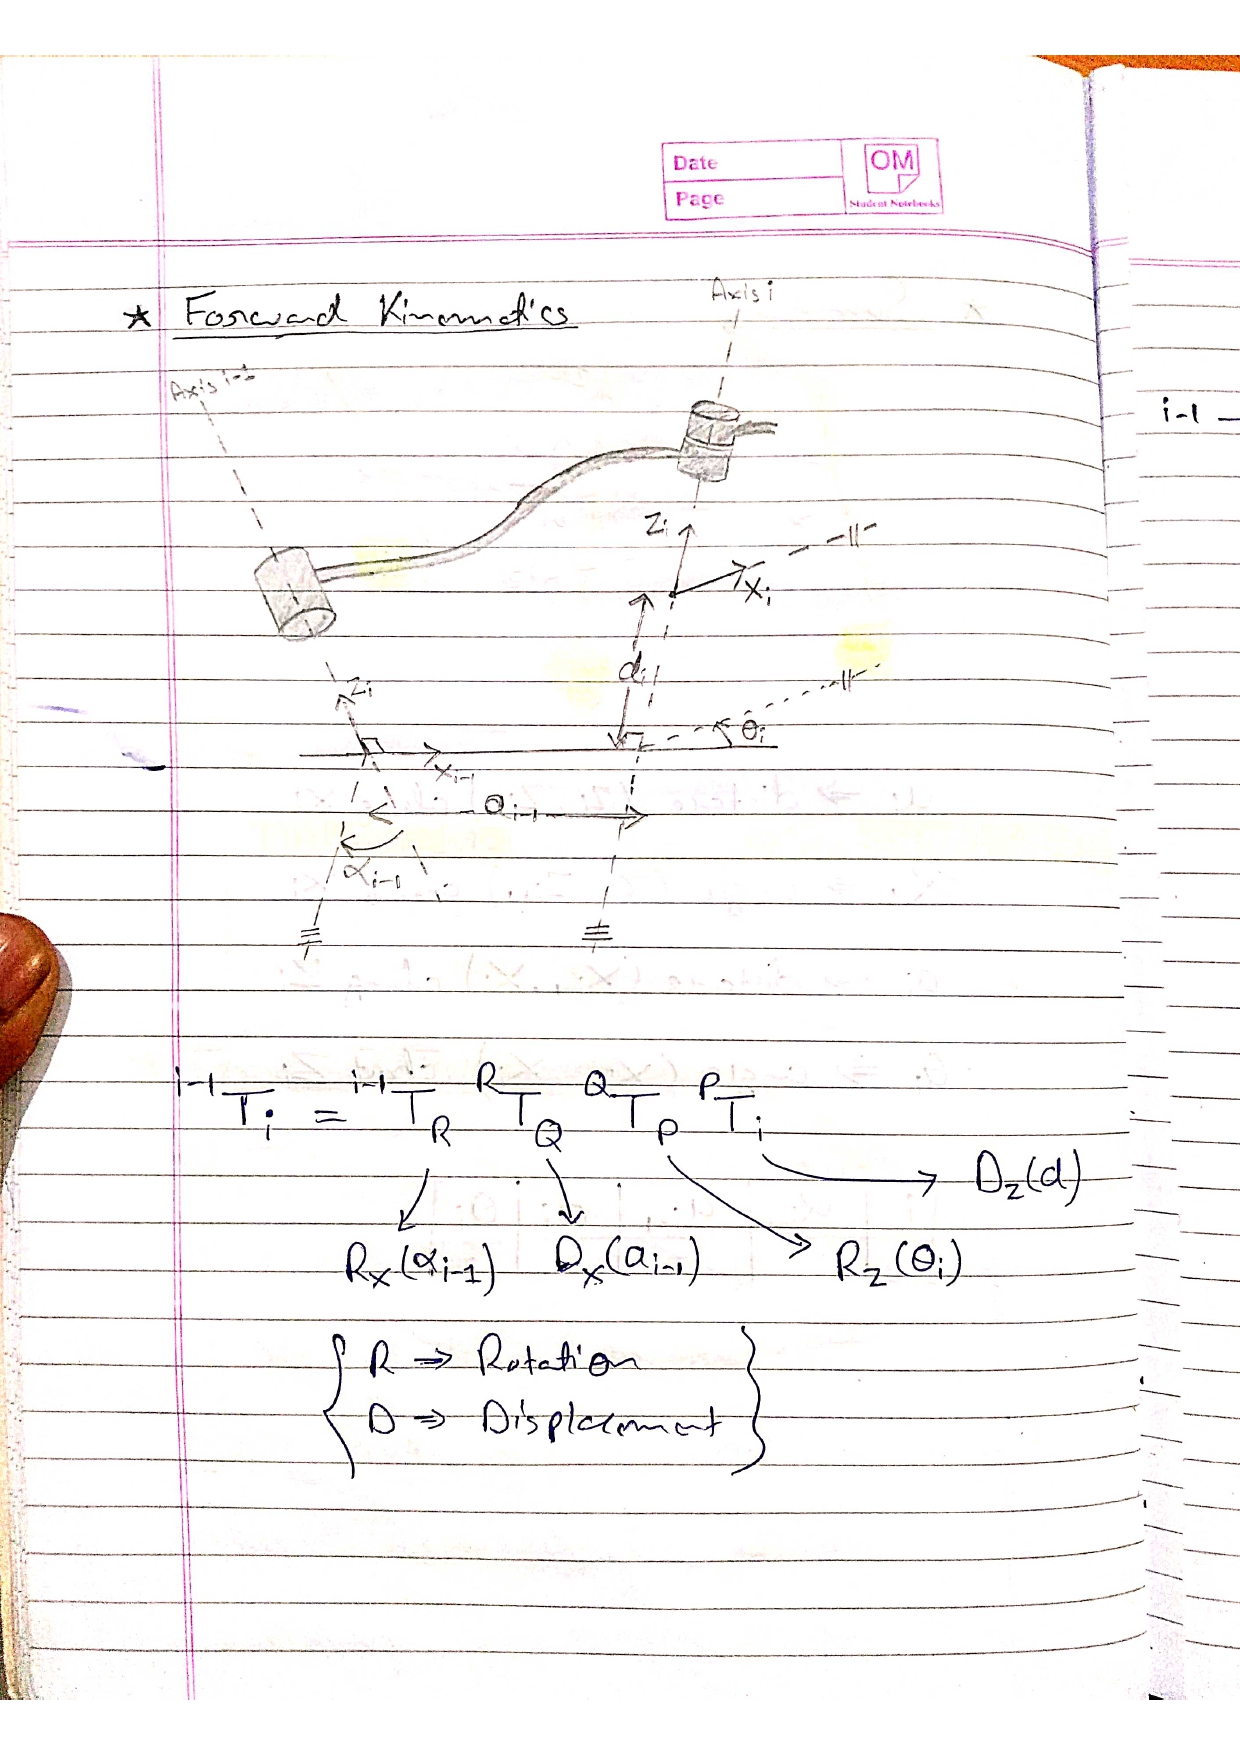 Date
Page
OM
Student Notebooks
* Forward Kinematics
Axis i
Axis i-1
i-1
Zi
Xi
di
Zi
θi
Xi-1
ai-1
αi-1
i-1Ti = i-1TR RTQ QTP PTi
Dz(d)
Rx(αi-1) Dx(ai-1) Rz(θi)
{ R ⇒ Rotation
D ⇒ Displacement }